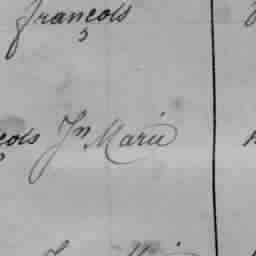 françois
çois Jn Marie